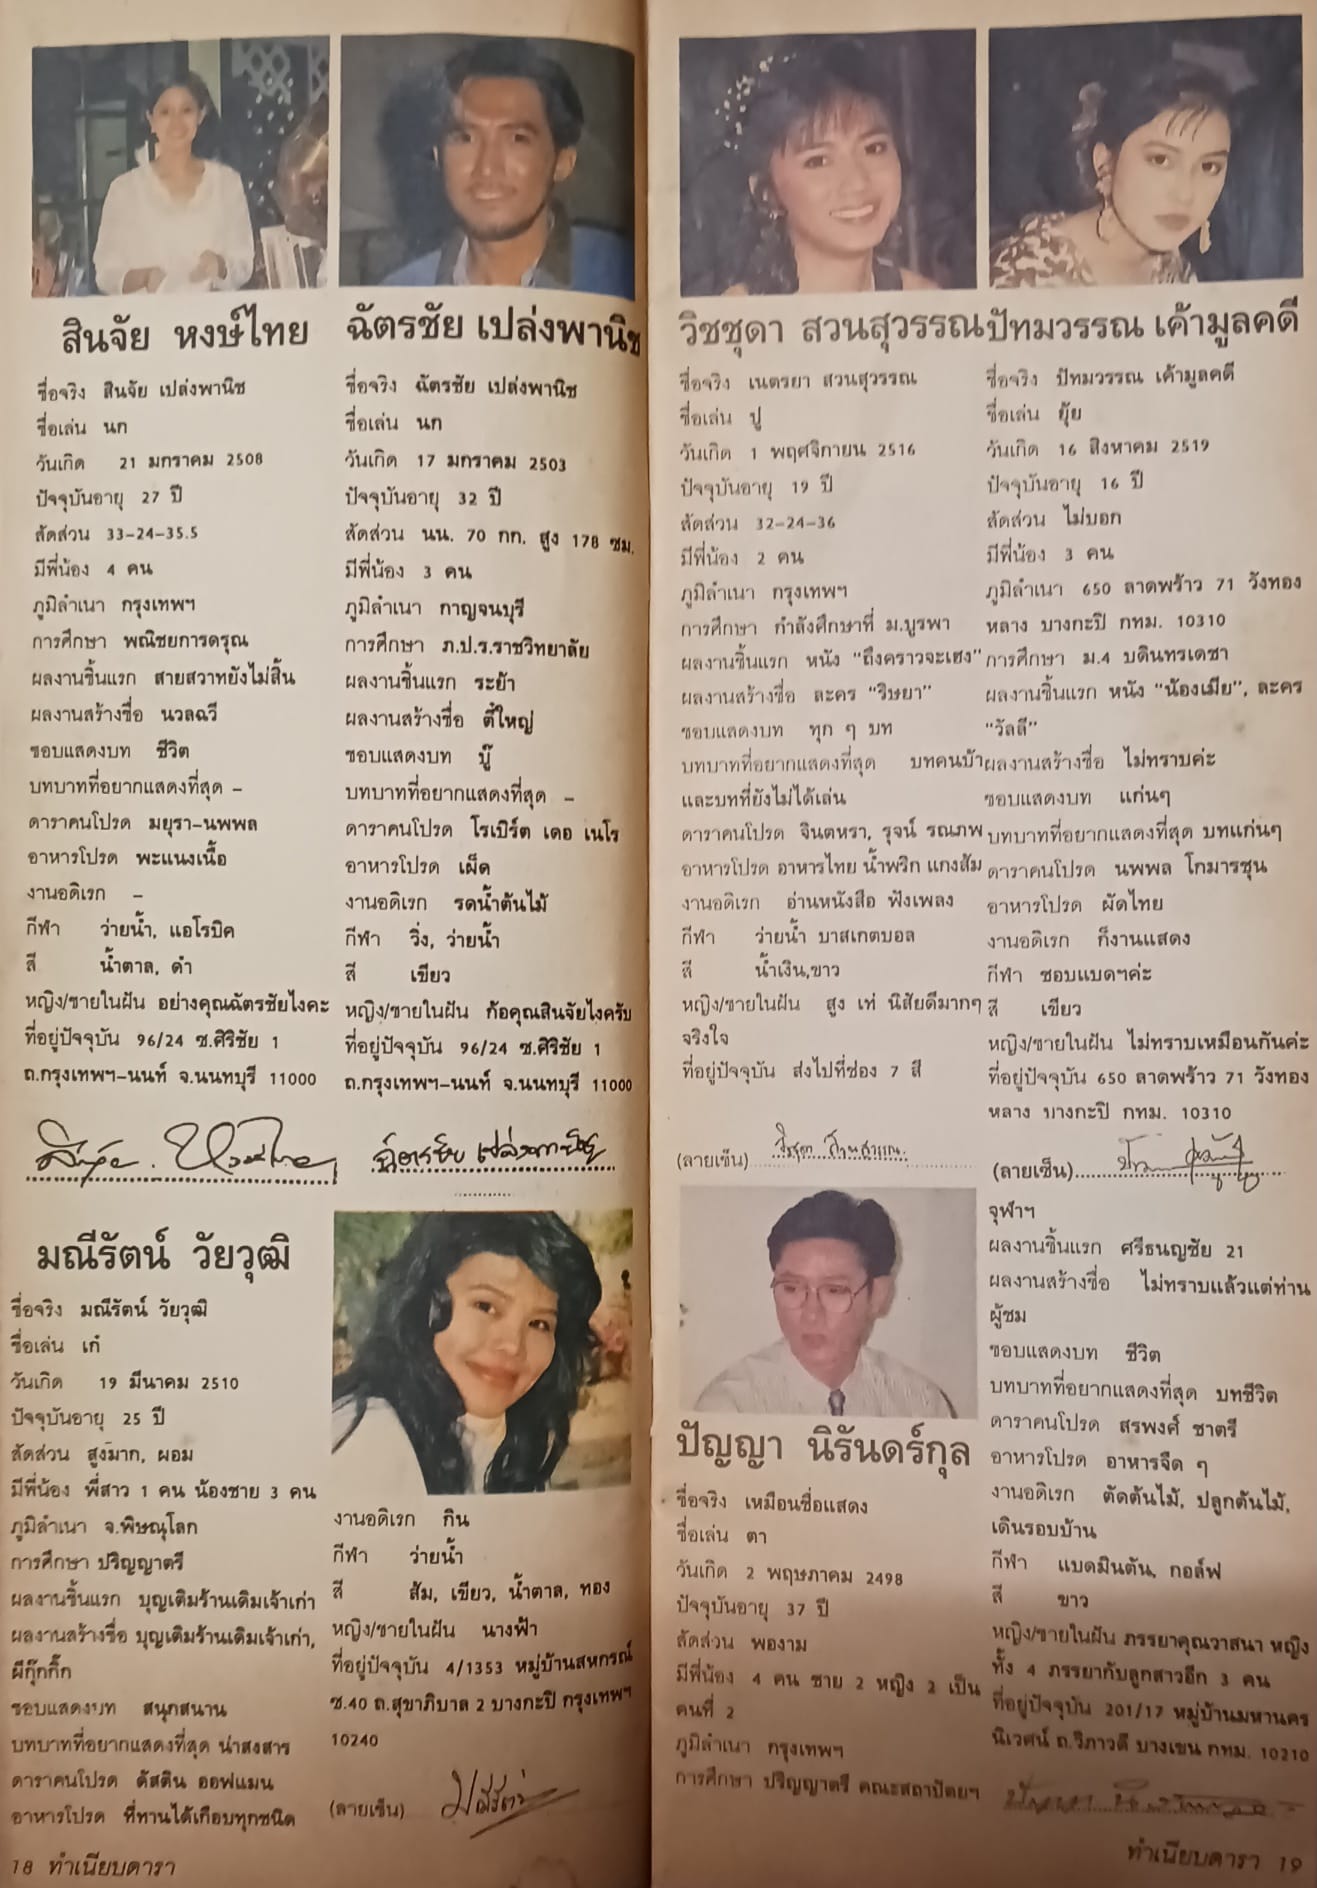 สินจัย หงษ์ไทย
ชื่อจริง สินจัย เปล่งพานิช
ชื่อเล่น นก
วันเกิด 21 มกราคม 2508
ปัจจุบันอายุ 27 ปี
สัดส่วน 33-24-35.5
มีพี่น้อง 4 คน
ภูมิลำเนา กรุงเทพฯ
การศึกษา พณิชยการดรุณ
ผลงานชิ้นแรก สายสวาทยังไม่สิ้น
ผลงานสร้างชื่อ นวลฉวี
ชอบแสดงบท ชีวิต
บทบาทที่อยากแสดงที่สุด -
ดาราคนโปรด มยุรา-นพพล
อาหารโปรด พะแนงเนื้อ
งานอดิเรก -
กีฬา ว่ายน้ำ, แอโรบิค
สี น้ำตาล, ดำ
หญิง/ชายในฝัน อย่างคุณฉัตรชัยไงคะ
ที่อยู่ปัจจุบัน 96/24 ซ.ศิริชัย 1
ถ.กรุงเทพฯ-นนท์ จ.นนทบุรี 11000
สินจัย หงษ์ไทย
ฉัตรชัย เปล่งพานิช
ชื่อจริง ฉัตรชัย เปล่งพานิช
ชื่อเล่น นก
วันเกิด 17 มกราคม 2503
ปัจจุบันอายุ 32 ปี
สัดส่วน นน. 70 กก. สูง 178 ซม.
มีพี่น้อง 3 คน
ภูมิลำเนา กาญจนบุรี
การศึกษา ภ.ป.ร.ราชวิทยาลัย
ผลงานชิ้นแรก ระย้า
ผลงานสร้างชื่อ ตี๋ใหญ่
ชอบแสดงบท บู๊
บทบาทที่อยากแสดงที่สุด -
ดาราคนโปรด โรเบิร์ต เดอ เนโร
อาหารโปรด เผ็ด
งานอดิเรก รดน้ำต้นไม้
กีฬา วิ่ง, ว่ายน้ำ
สี เขียว
หญิง/ชายในฝัน ก้อคุณสินจัยไงครับ
ที่อยู่ปัจจุบัน 96/24 ซ.ศิริชัย 1
ถ.กรุงเทพฯ-นนท์ จ.นนทบุรี 11000
ฉัตรชัย เปล่งพานิช
มณีรัตน์ วัยวุฒิ
ชื่อจริง มณีรัตน์ วัยวุฒิ
ชื่อเล่น เก๋
วันเกิด 19 มีนาคม 2510
ปัจจุบันอายุ 25 ปี
สัดส่วน สูงมาก, ผอม
มีพี่น้อง พี่สาว 1 คน น้องชาย 3 คน
ภูมิลำเนา จ.พิษณุโลก
การศึกษา ปริญญาตรี
ผลงานชิ้นแรก บุญเติมร้านเดิมเจ้าเก่า
ผลงานสร้างชื่อ บุญเติมร้านเดิมเจ้าเก่า,
ผีกุ๊กกิ๊ก
ชอบแสดงบท สนุกสนาน
บทบาทที่อยากแสดงที่สุด น่าสงสาร
ดาราคนโปรด ดัสติน ฮอฟแมน
อาหารโปรด ที่ทานได้เกือบทุกชนิด
งานอดิเรก กิน
กีฬา ว่ายน้ำ
สี ส้ม, เขียว, น้ำตาล, ทอง
หญิง/ชายในฝัน นางฟ้า
ที่อยู่ปัจจุบัน 4/1353 หมู่บ้านสหกรณ์
ซ.40 ถ.สุขาภิบาล 2 บางกะปิ กรุงเทพฯ
10240
(ลายเซ็น) มณีรัตน์
18 ทำเนียบดารา
วิชชุดา สวนสุวรรณ
ชื่อจริง เนตรยา สวนสุวรรณ
ชื่อเล่น ปู
วันเกิด 1 พฤศจิกายน 2516
ปัจจุบันอายุ 19 ปี
สัดส่วน 32-24-36
มีพี่น้อง 2 คน
ภูมิลำเนา กรุงเทพฯ
การศึกษา กำลังศึกษาที่ ม.บูรพา
ผลงานชิ้นแรก หนัง "ถึงคราวจะเฮง"
ผลงานสร้างชื่อ ละคร "ริษยา"
ชอบแสดงบท ทุก ๆ บท
บทบาทที่อยากแสดงที่สุด บทคนบ้า
และบทที่ยังไม่ได้เล่น
ดาราคนโปรด จินตหรา, รุจน์ รณภพ
อาหารโปรด อาหารไทย น้ำพริก แกงส้ม
งานอดิเรก อ่านหนังสือ ฟังเพลง
กีฬา ว่ายน้ำ บาสเกตบอล
สี น้ำเงิน,ขาว
หญิง/ชายในฝัน สูง เท่ นิสัยดีมากๆ
จริงใจ
ที่อยู่ปัจจุบัน ส่งไปที่ช่อง 7 สี
(ลายเซ็น) วิชชุดา สวนสุวรรณ
ปัทมวรรณ เค้ามูลคดี
ชื่อจริง ปัทมวรรณ เค้ามูลคดี
ชื่อเล่น ยุ้ย
วันเกิด 16 สิงหาคม 2519
ปัจจุบันอายุ 16 ปี
สัดส่วน ไม่บอก
มีพี่น้อง 3 คน
ภูมิลำเนา 650 ลาดพร้าว 71 วังทอง
หลาง บางกะปิ กทม. 10310
การศึกษา ม.4 บดินทรเดชา
ผลงานชิ้นแรก หนัง "น้องเมีย", ละคร
"วัลลี"
ผลงานสร้างชื่อ ไม่ทราบค่ะ
ชอบแสดงบท แก่นๆ
บทบาทที่อยากแสดงที่สุด บทแก่นๆ
ดาราคนโปรด นพพล โกมารชุน
อาหารโปรด ผัดไทย
งานอดิเรก ก็งานแสดง
กีฬา ชอบแบดฯค่ะ
สี เขียว
หญิง/ชายในฝัน ไม่ทราบเหมือนกันค่ะ
ที่อยู่ปัจจุบัน 650 ลาดพร้าว 71 วังทอง
หลาง บางกะปิ กทม. 10310
(ลายเซ็น)
ปัญญา นิรันดร์กุล
ชื่อจริง เหมือนชื่อแสดง
ชื่อเล่น ตา
วันเกิด 2 พฤษภาคม 2498
ปัจจุบันอายุ 37 ปี
สัดส่วน พองาม
มีพี่น้อง 4 คน ชาย 2 หญิง 2 เป็น
คนที่ 2
ภูมิลำเนา กรุงเทพฯ
การศึกษา ปริญญาตรี คณะสถาปัตยฯ
จุฬาฯ
ผลงานชิ้นแรก ศรีธนญชัย 21
ผลงานสร้างชื่อ ไม่ทราบแล้วแต่ท่าน
ผู้ชม
ชอบแสดงบท ชีวิต
บทบาทที่อยากแสดงที่สุด บทชีวิต
ดาราคนโปรด สรพงศ์ ชาตรี
อาหารโปรด อาหารจืด ๆ
งานอดิเรก ตัดต้นไม้, ปลูกต้นไม้,
เดินรอบบ้าน
กีฬา แบดมินตัน, กอล์ฟ
สี ขาว
หญิง/ชายในฝัน ภรรยาคุณวาสนา หญิง
ทั้ง 4 ภรรยากับลูกสาวอีก 3 คน
ที่อยู่ปัจจุบัน 201/17 หมู่บ้านมหานคร
นิเวศน์ ถ.วิภาวดี บางเขน กทม. 10210
ปัญญา นิรันดร์กุล
ทำเนียบดารา 19